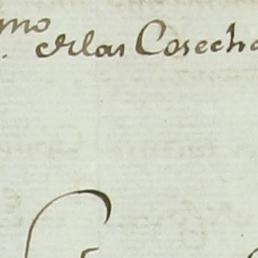 mo
de las Cosecha